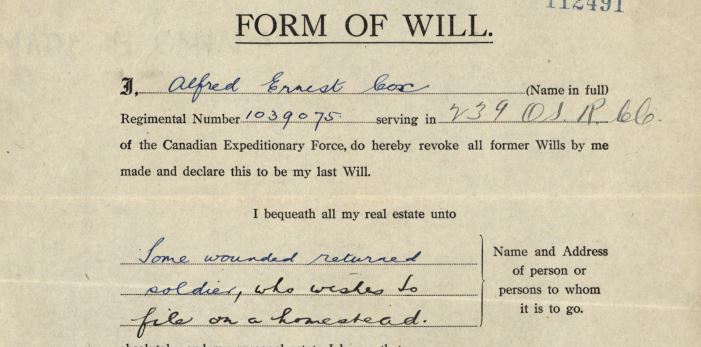 112491
FORM OF WILL.
I, Alfred Ernest Cox (Name in full)
Regimental Number 1039075 serving in 239 OS. R. CC.
of the Canadian Expeditionary Force, do hereby revoke all former Wills by me
made and declare this to be my last Will.
I bequeath all my real estate unto
Some wounded returned
soldier, who wishes to
file on a homestead.
Name and Address
of person or
persons to whom
it is to go.